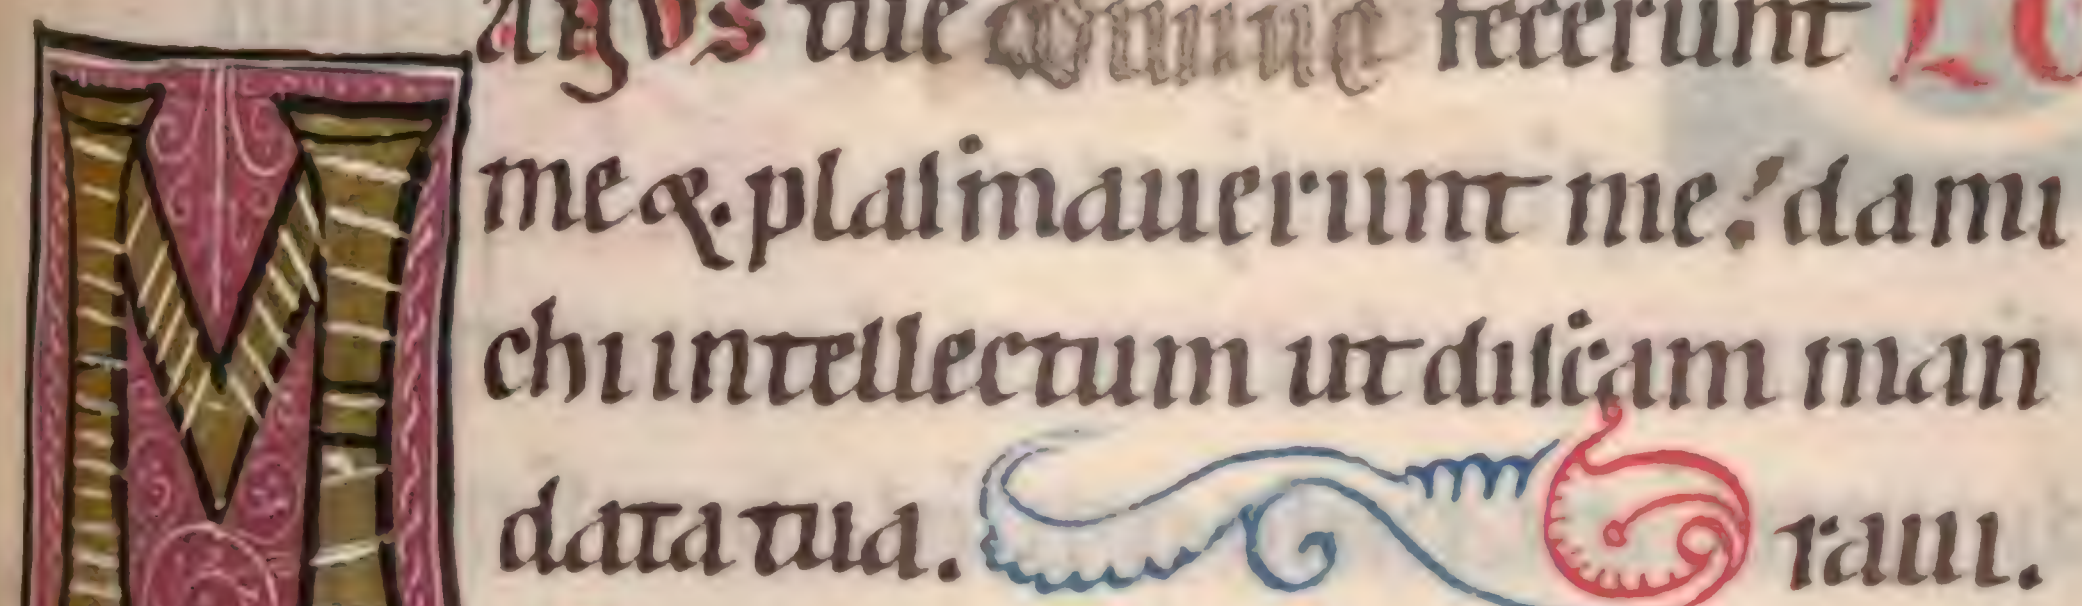 MANVS tue domine fecerunt
me &. plaſmauerunt me: da mi
chi intellectum ut diſcam man
data tua. raui.